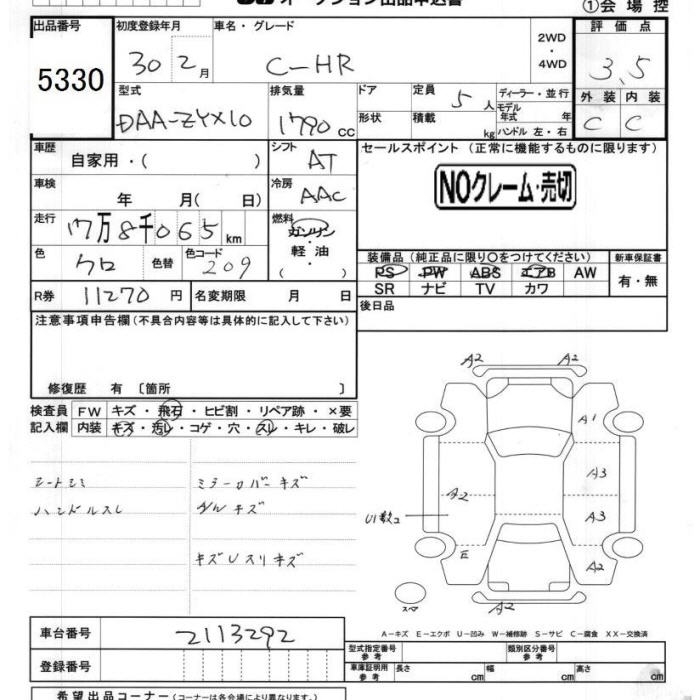 ①会場控
出品番号
5330
初度登録年月
30 2月
車名・グレード
C-HR
2WD
・
4WD
評価点
3.5
型式
DAA-ZYX10
排気量
1790 cc
ドア
定員
5人
ディーラー・並行
形状
積載
kg
モデル年式 年
ハンドル 左・右
外装 内装
C C
車歴
自家用・( )
シフト
AT
セールスポイント (正常に機能するものに限ります)
NOクレーム・売切
車検
年 月( 日)
冷房
AAC
走行
17万8千065km
燃料
ガソリン
軽油
( ・ )
色
クロ
色替
色コード
209
装備品 (純正品に限り○をつけてください)
新車保証書
PS PW ABS エアB AW
SR ナビ TV カワ
有・無
R券 11270 円
名変期限 月 日
後日品
注意事項申告欄 (不具合内容等は具体的に記入して下さい)
修復歴 有 〔箇所 〕
検査員 FW キズ・飛石・ヒビ割・リペア跡・×要
記入欄 内装 キズ・汚レ・コゲ・穴・スレ・キレ・破レ
シートシミ
ミラーカバーキズ
ハンドルスレ
キズUスリキズ
A2 A2
A1
A3
A2
A3
U1数コ
E
A2
A2
スペア
A-キズ E-エクボ U-凹み W-補修跡 S-サビ C-腐食 XX-交換済
車台番号 2113292
型式指定番号 参考
類別区分番号 参考
登録番号
車庫証明用 参考
長さ cm 幅 cm 高さ cm
希望出品コーナー (コーナーは各会場により異なります)